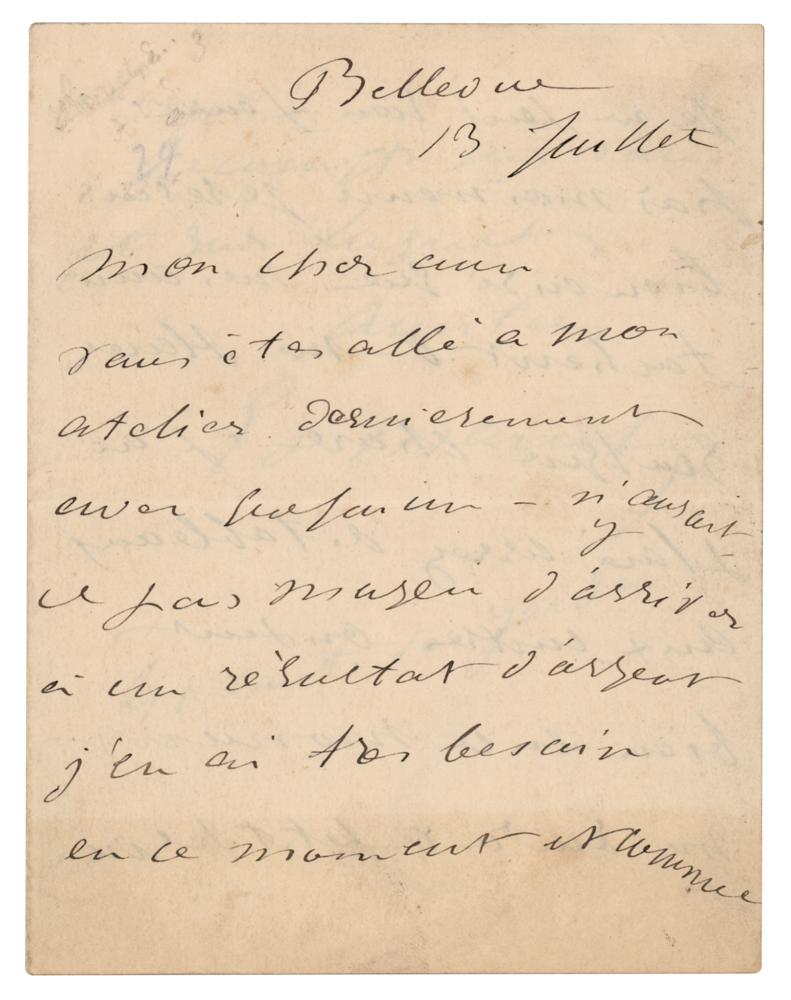 Bellevue
13 Juillet
mon cher ami
vous êtes allé a mon
atelier dernierement
avec – n'y aurait-
il pas moyen d'arriver
à un résultat d'argent
j'en ai tres besoin
en ce moment et comme